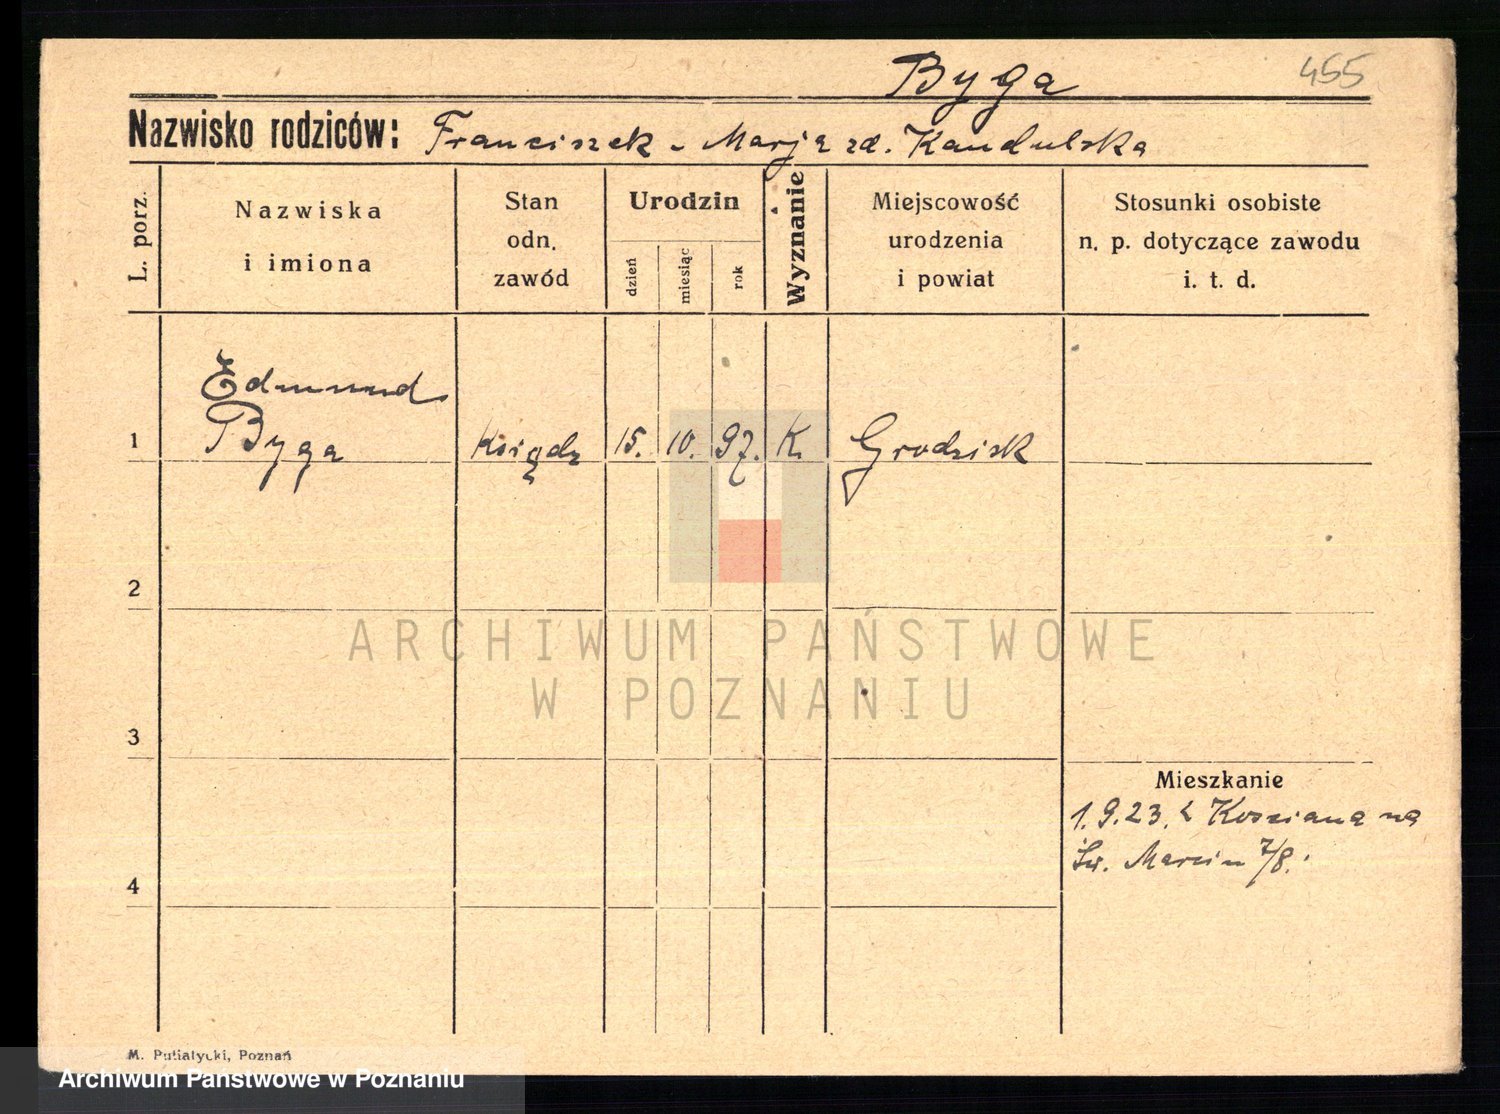 Byga
455
Nazwisko rodziców: Franciszek - Marja zd. Kandulska
L. porz.
Nazwiska
i imiona
Stan
odn.
zawód
Urodzin
dzień
miesiąc
rok
Wyznanie
Miejscowość
urodzenia
i powiat
Stosunki osobiste
n. p. dotyczące zawodu
i. t. d.
Edmund
1 Byga Ksiądz 15. 10. 97. K. Grodzisk
2
ARCHIWUM PAŃSTWOWE
W POZNANIU
3
Mieszkanie
1.9.23. z Kościana na
Św. Marcin 7/8.
4
M. Putiatycki, Poznań
Archiwum Państwowe w Poznaniu